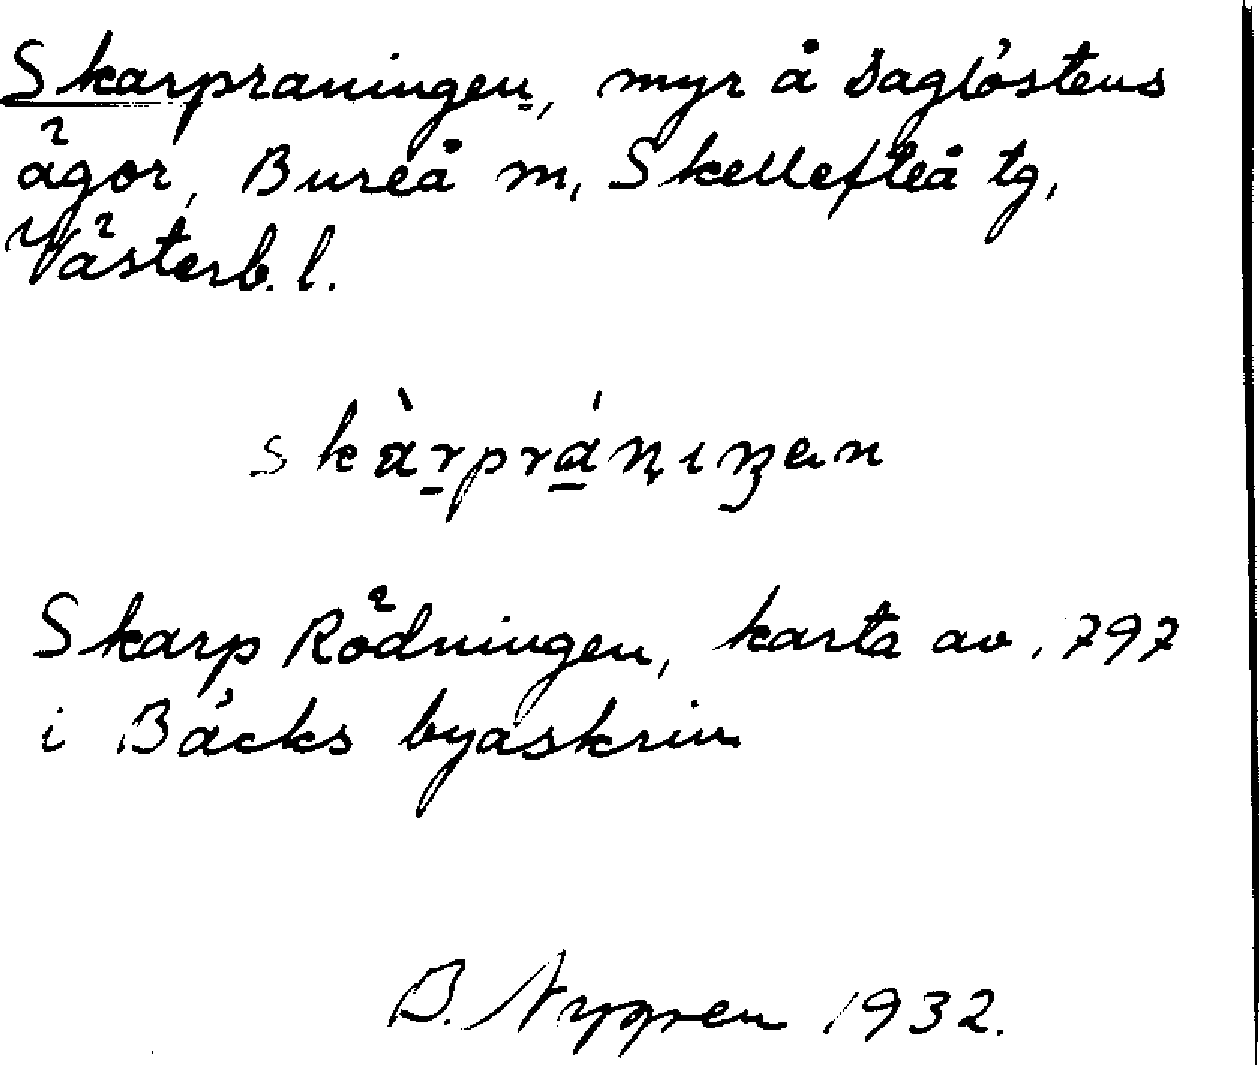 Skarpraningen, myr å Daglöstens
ägor, Bureå m, Skellefteå tg,
Västerb. l.
skàrpránıŋen
Skarp Rödningen, karta av, 797
i Bäcks byaskrin
B. Nygren 1932.